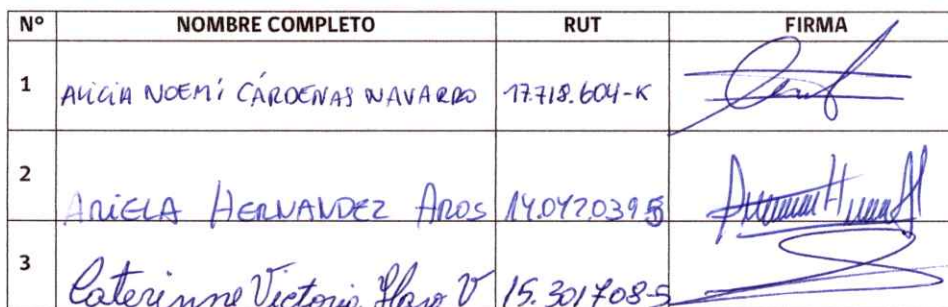 Nº NOMBRE COMPLETO RUT FIRMA
1 ALICIA NOEMÍ CÁRDENAS NAVARRO 17.718.604-K
2 ARIELA HERNANDEZ AROS 14.042.039
3 Caterinne Victoria Haro V 15.301708-5